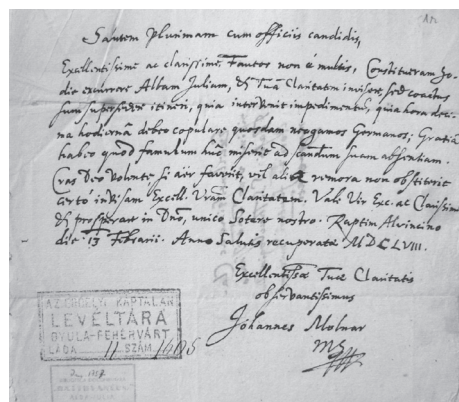 Salutem plurimam cum officiis candidis,
Excellentissime ac clarissime Fautor non è multis, Constitueram ho-
die excurrere Albam Juliam, & Tuã Claritatem invisere, sed coactus
sum supersedere itineri, quia intervenit impedimentũ, quia hora deci-
na hodiernâ debeo copulare quosdam neogamos Germanos; Gratiã
habeo quod famulum huc miserit ad suam absentiam.
Cras Deo volente si aër faverit, vel alia remora non obstiterit
certò invisam Excell. Vram Claritatem. Vale Vir Exc. ac Clarissime
& prosperare in Dnõ, unico Sotere nostro. Raptim Alvincino
die 13 Februarii. Anno Salutis recuperatæ MDCLVIII.
Excellentissæ Tuæ Claritatis
observantissimus
Johannes Molnar
mp
AZ ERDÉLYI KÁPTALAN
LEVÉLTÁRA
GYULA-FEHÉRVÁRT
LADA 11 SZÁM. 1605